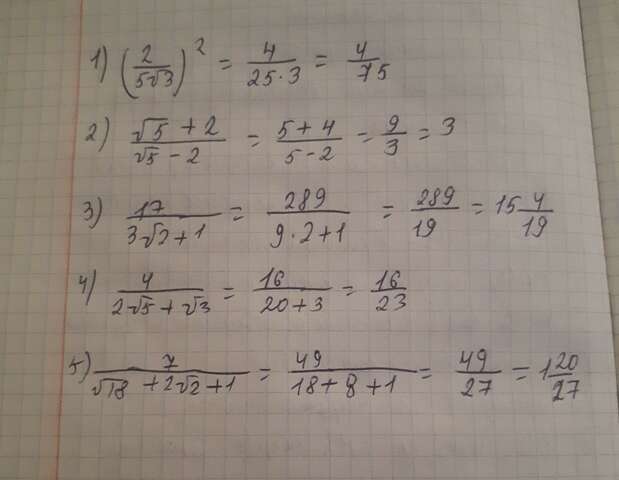 1) (2/(5√3))² = 4/(25·3) = 4/75
2) (√5 + 2)/(√5 - 2) = (5+4)/(5-2) = 9/3 = 3
3) 17/(3√2+1) = 289/(9·2+1) = 289/19 = 15 4/19
4) 4/(2√5+√3) = 16/(20+3) = 16/23
5) 7/(√18 +2√2+1) = 49/(18+8+1) = 49/27 = 1 20/27